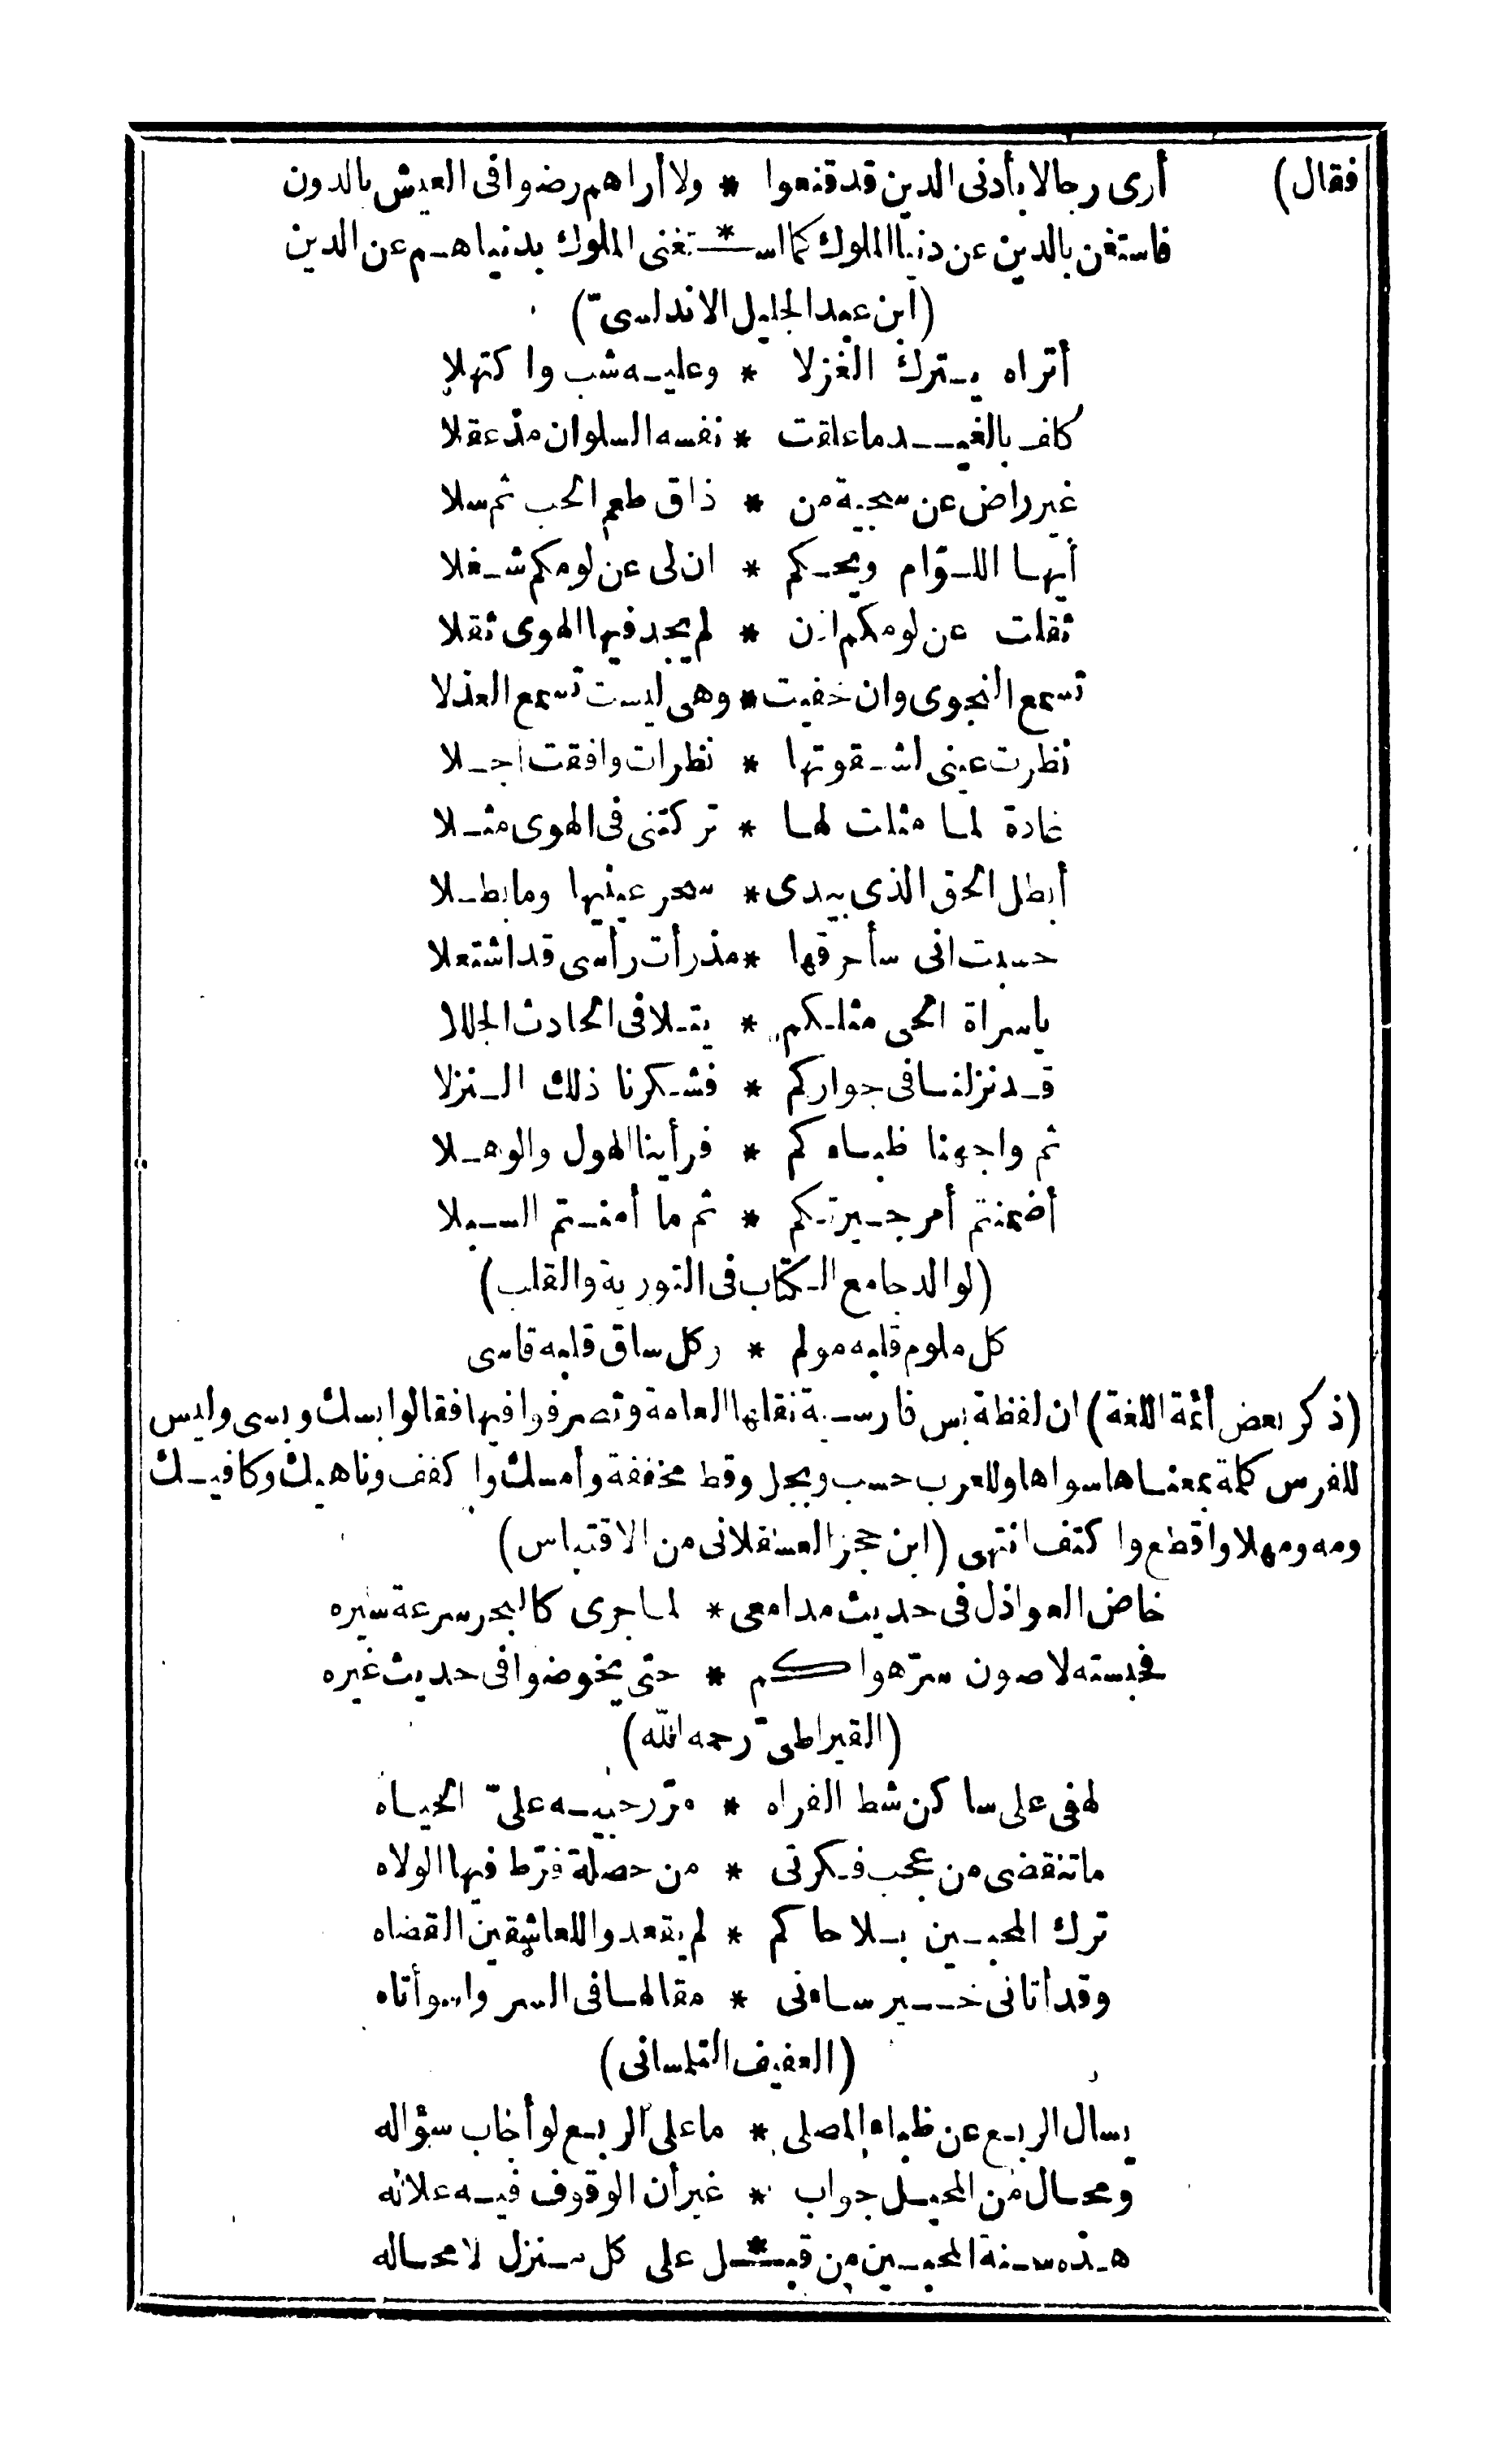 فقال) أرى رجالا بأدنى الدين قد قنعوا * ولا أراهم رضوا فى العيش بالدون
فاستغن بالدين عن دنيا الملوك كما اسـ * ـتغنى الملوك بدنياهم عن الدين
(ابن عبد الجليل الاندلسىّ)
أتراه يترك الغزلا * وعليه شب واكتهلا
كلف بالغيد ما علقت * نفسه السلوان مذ عقلا
غير راض عن سجية من * ذاق طعم الحب ثم سلا
أيها اللوّام ويحكم * ان لى عن لومكم شغلا
ثقلت عن لومكم اذن * لم يجد فيها الهوى ثقلا
تسمع النجوى وان خفيت * وهى ليست تسمع العذلا
نظرت عينى لشقوتها * نظرات وافقت اجلا
غادة لما مثلت لها * تركتنى فى الهوى مثلا
أبطل الحق الذى بيدى * سحر عينيها وما بطلا
حسبت انى سأحرقها * مذ رأت رأسى قد اشتعلا
ياسراة الحى مثلكم * يتلافى الحادث الجللا
قد نزلنا فى جواركم * فشكرنا ذلك النزلا
ثم واجهنا ظباءكم * فرأينا الهول والوهلا
أضمنتم أمر جيرتكم * ثم ما أمنتم السبلا
(لوالد جامع الكتاب فى التورية والقلب)
كل ملوم قلبه مولم * وكل ساق قلبه قاسى
(ذكر بعض أئمة اللغة) ان لفظة بس فارسية نقلتها العامة وتصرفوا فيها فقالوا بسك وبسى وليس
للفرس كلمة بمعناها سواها وللعرب حسب وبجل وقط مخففة وأمسك واكفف وناهيك وكافيك
ومه ومهلا واقطع واكتف انتهى (ابن حجر العسقلانى من الاقتباس)
خاض العواذل فى حديث مدامعى * لما جرى كالبحر سرعة سيره
فحبسته لاصون سرّ هواكم * حتى يخوضوا فى حديث غيره
(القيراطىّ رحمه الله)
لهفى على ساكن شط الفراه * مرّر حبيه علىّ الحياه
ما تنقضى من عجب فكرتى * من خصلة فرّط فيها الولاه
ترك المحبين بلا حاكم * لم يقعدوا للعاشقين القضاه
وقد أتانى خبر ساءنى * مقالها فى السر واسوأتاه
(العفيف التلمسانى)
يسأل الربع عن ظباء المصلى * ما على الربع لو أجاب سؤاله
ومحال من المحيل جواب * غير أن الوقوف فيه علاله
هذه سنة المحبين من قبـ * ـل على كل منزل لا محاله